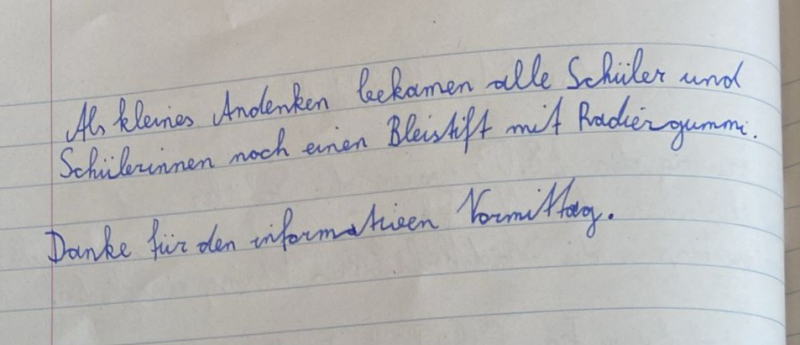 Als kleines Andenken bekamen alle Schüler und
Schülerinnen noch einen Bleistift mit Radiergummi.
Danke für den informativen Vormittag.